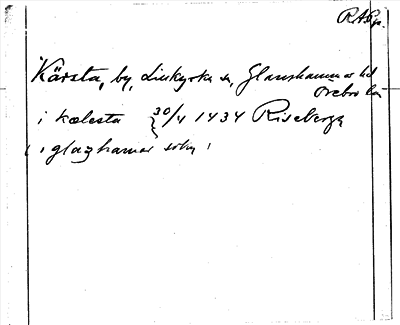 RAp.
Kärsta, by, Linkyrka sn, Glanshammars hd
Örebro län
i kælesta 30/4 1434 Riseberga
( i glazhamar sokn )